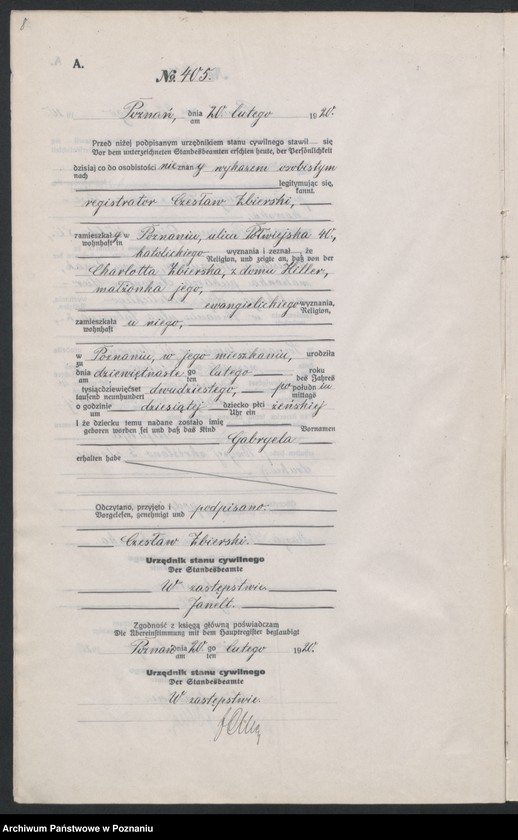 A.
No. 405.
Poznań, dnia 20. lutego 1920.
am
Przed niżej podpisanym urzędnikiem stanu cywilnego stawił się
Vor dem unterzeichneten Standesbeamten erschien heute, der Persönlichkeit
dzisiaj co do osobistości nieznany wykazem osobistym
nach
legitymując się,
kannt.
registrator Czesław Zbierski,
zamieszkały w Poznaniu, ulica Półwiejska 40,
wohnhaft in
katolickiego wyznania i zeznał że
Religion, und zeigte an, daß von der
Charlotta Zbierska, z domu Hiller,
małżonka jego,
ewangielickiego wyznania,
Religion,
zamieszkała u niego,
wohnhaft
w Poznaniu, w jego mieszkaniu, urodziła
zu
dnia dziewiętnaste go lutego roku
am ten des Jahres
tysiącdziewięćset dwudziestego, po południu
tausend neunhundert mittags
o godzinie dziesiątej dziecko płci żeńskiej
um Uhr ein
i że dziecku temu nadane zostało imię
geboren worden sei und daß das Kind Vornamen
Gabryela
erhalten habe
Odczytano, przyjęto i podpisano.
Vorgelesen, genehmigt und
Czesław Zbierski.
Urzędnik stanu cywilnego
Der Standesbeamte
W zastępstwie
Janelt.
Zgodność z księgą główną poświadczam
Die Übereinstimmung mit dem Hauptregister beglaubigt
Poznań dnia 20. go lutego 1920.
am ten
Urzędnik stanu cywilnego
Der Standesbeamte
W zastępstwie
Archiwum Państwowe w Poznaniu